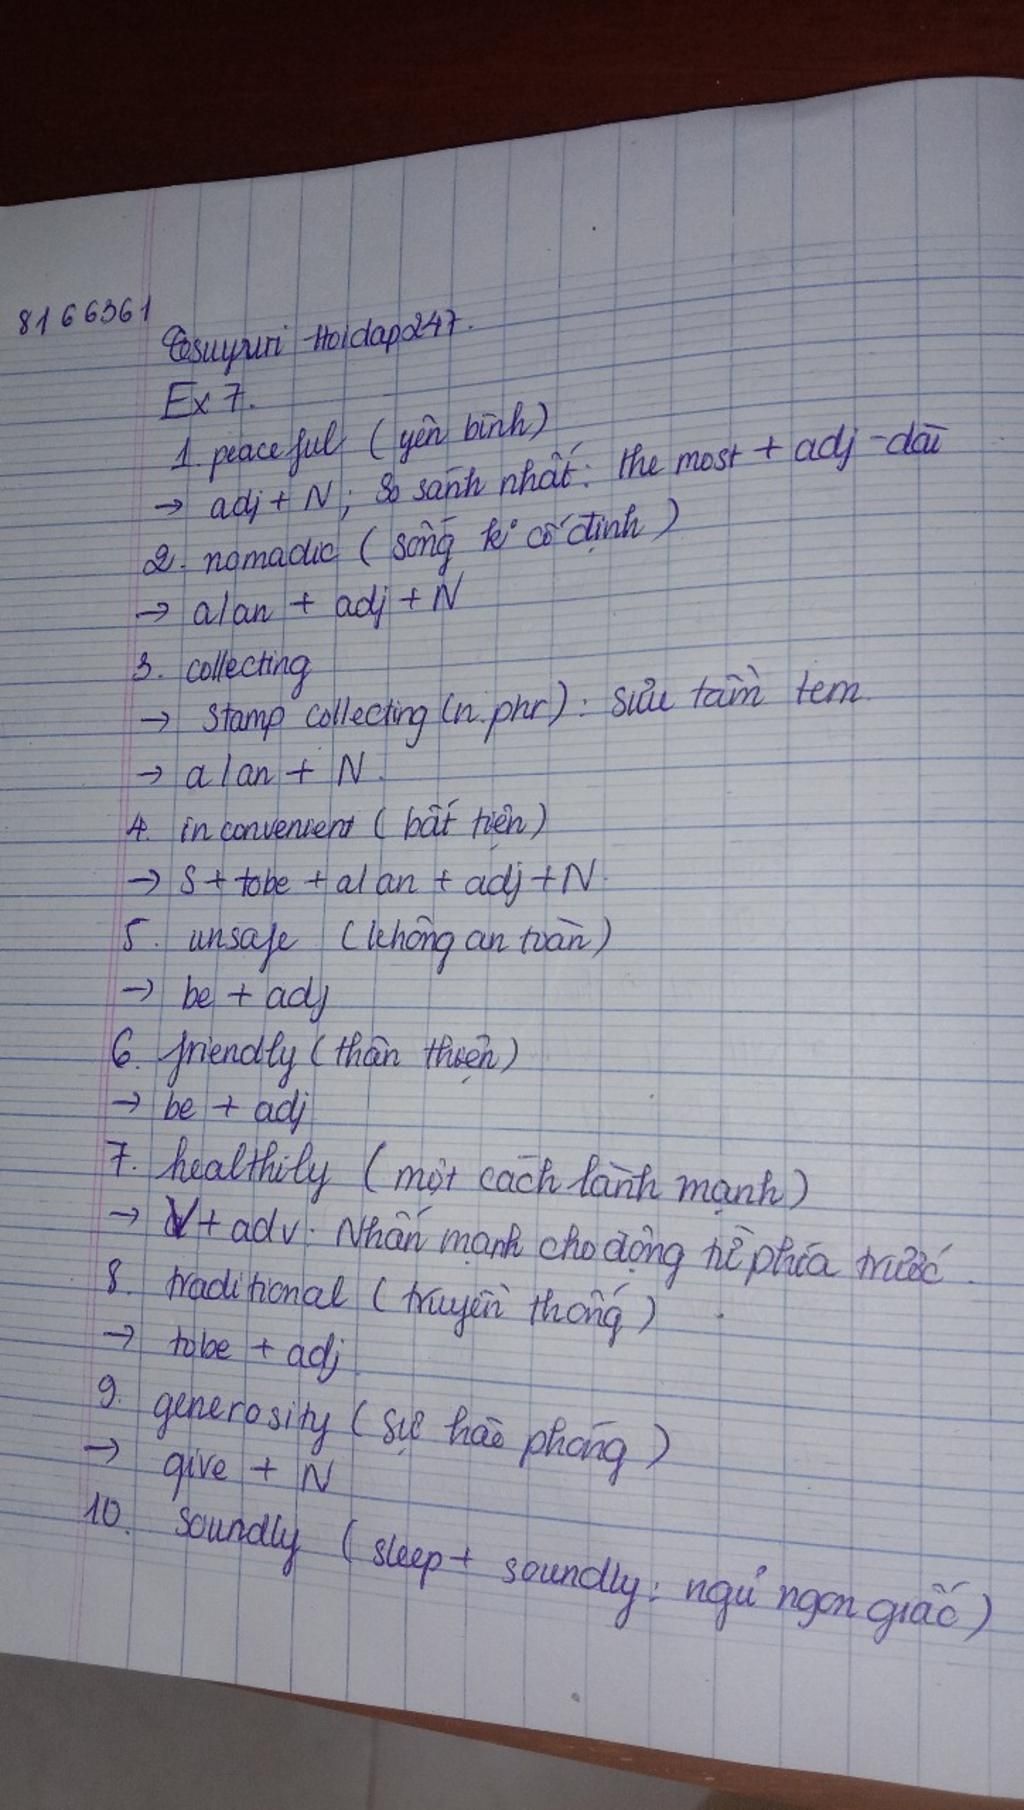 8166361
Hoidap247.
Ex 7.
1. peaceful (yên bình)
→ adj + N; So sánh nhất: the most + adj-dài
2. nomadic (sống k cố định)
→ a/an + adj + N
3. collecting
→ stamp collecting (n.phr): sưu tầm tem.
→ a/an + N.
4. inconvenient (bất tiện)
→ S + tobe + a/an + adj + N.
5. unsafe (không an toàn)
→ be + adj
6. friendly (thân thiện)
→ be + adj
7. healthily (một cách lành mạnh)
→ V + adv: Nhấn mạnh cho động từ phía trước.
8. traditional (truyền thống)
→ tobe + adj
9. generosity (sự hào phóng)
→ give + N
10. soundly (sleep + soundly: ngủ ngon giấc)